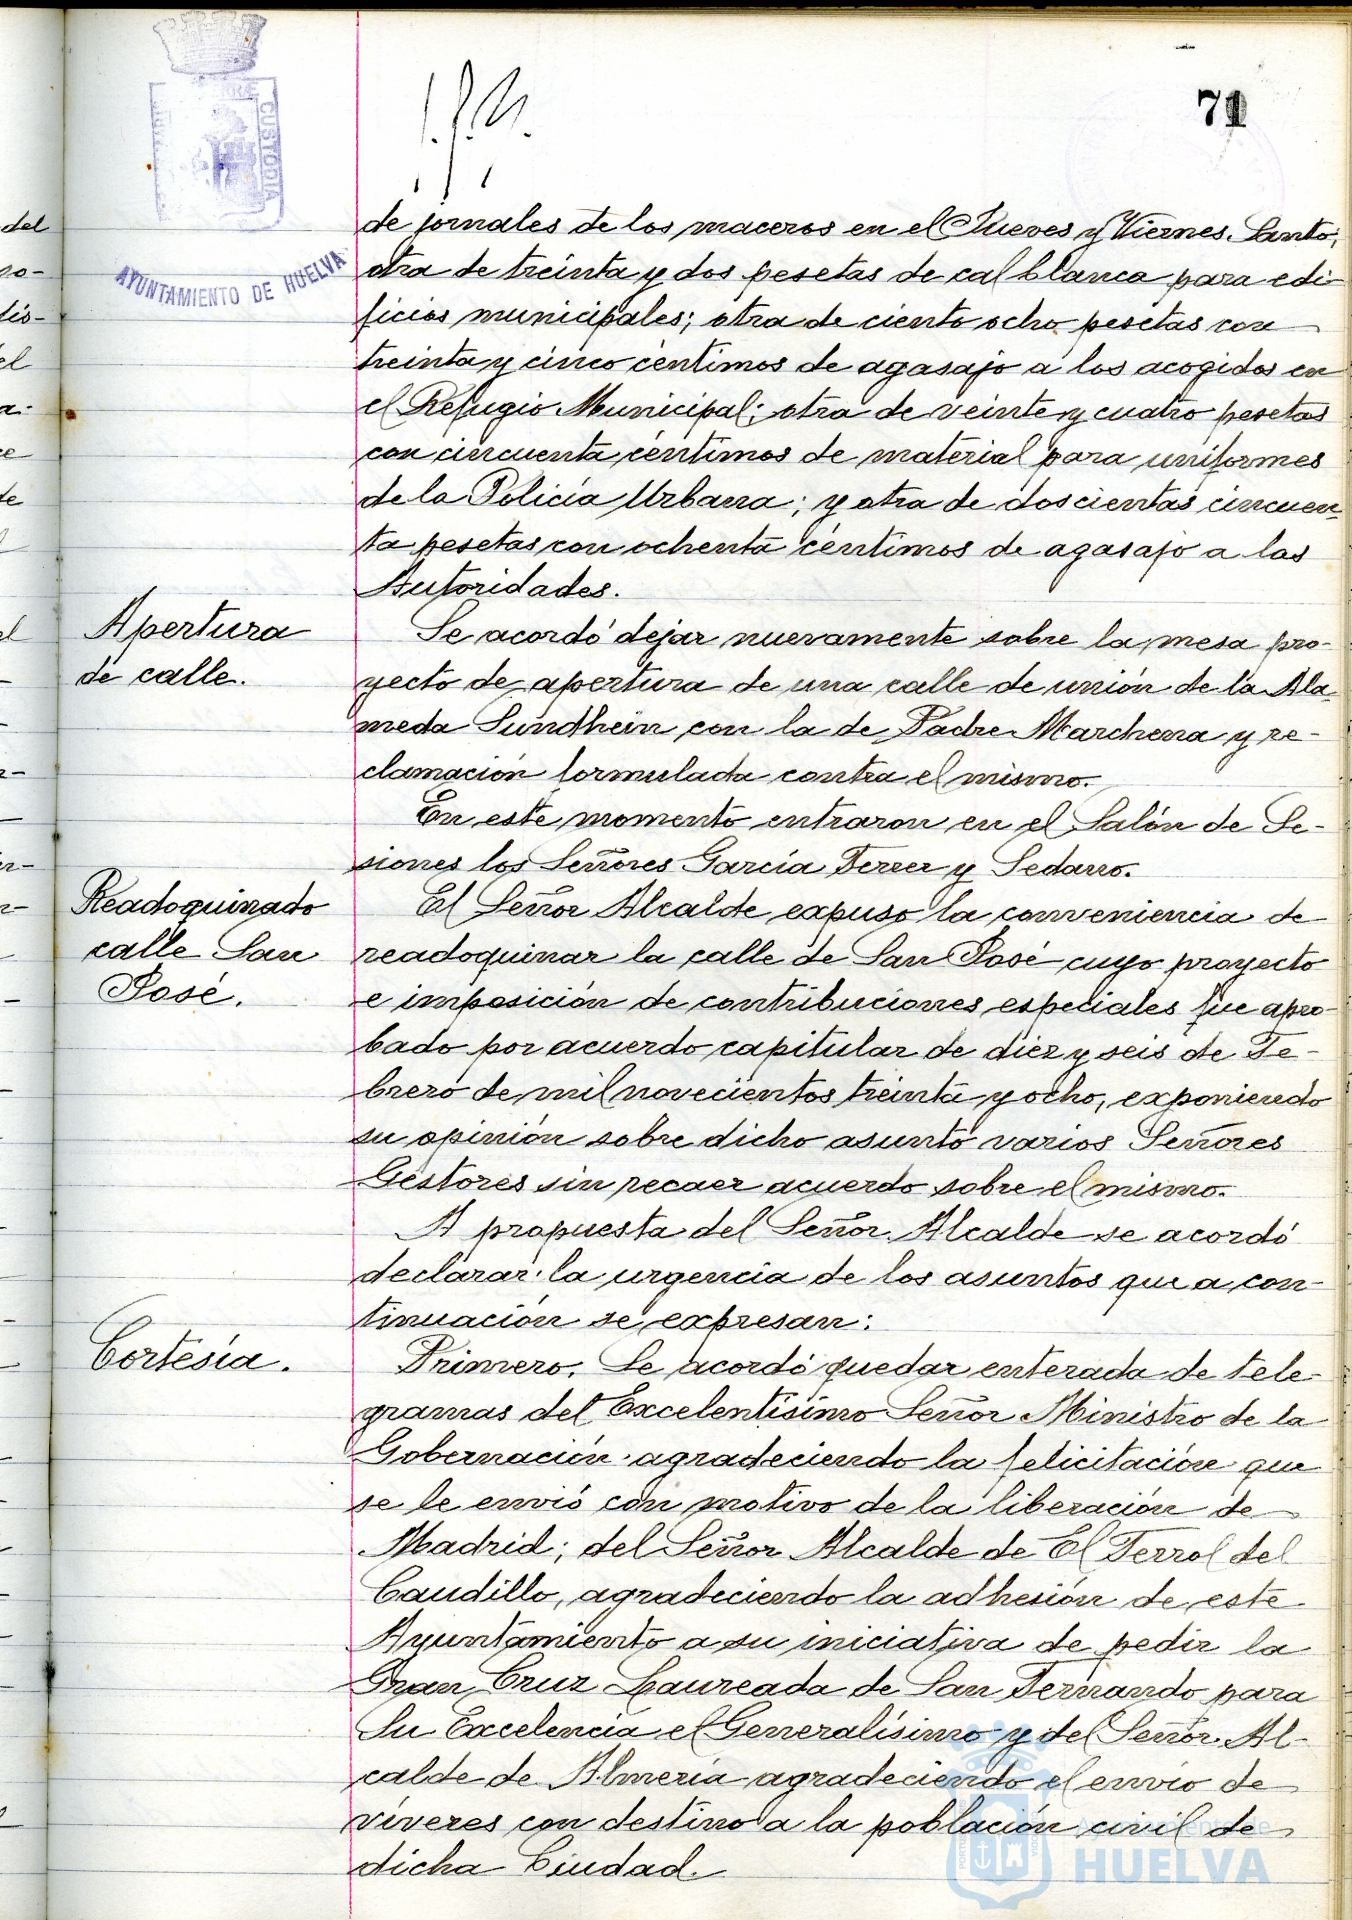 71
CUSTODIA
AYUNTAMIENTO DE HUELVA
de jornales de los maceros en el Jueves y Viernes Santo;
otra de treinta y dos pesetas de cal blanca para edi-
ficios municipales; otra de ciento ocho pesetas con
treinta y cinco céntimos de agasajo a los acogidos en
el Refugio Municipal; otra de veinte y cuatro pesetas
con cincuenta céntimos de material para uniformes
de la Policía Urbana; y otra de doscientas cincuen-
ta pesetas con ochenta céntimos de agasajo a las
Autoridades.
Apertura
de calle.
Se acordó dejar nuevamente sobre la mesa pro-
yecto de apertura de una calle de unión de la Ala-
meda Sundhein con la de Padre Marchena y re-
clamación formulada contra el mismo.
En este momento entraron en el Salón de Se-
siones los Señores García Ferrer y Sedano.
Readoquinado
calle San
José.
El Señor Alcalde expuso la conveniencia de
readoquinar la calle de San José cuyo proyecto
e imposición de contribuciones especiales fue apro-
bado por acuerdo capitular de diez y seis de Fe-
brero de mil novecientos treinta y ocho, exponiendo
su opinión sobre dicho asunto varios Señores
Gestores sin recaer acuerdo sobre el mismo.
A propuesta del Señor Alcalde se acordó
declarar la urgencia de los asuntos que a con-
tinuación se expresan:
Cortesía.
Primero. Se acordó quedar enterada de tele-
gramas del Excelentísimo Señor Ministro de la
Gobernación agradeciendo la felicitación que
se le envió con motivo de la liberación de
Madrid; del Señor Alcalde de El Ferrol del
Caudillo, agradeciendo la adhesión de este
Ayuntamiento a su iniciativa de pedir la
Gran Cruz Laureada de San Fernando para
Su Excelencia el Generalísimo y del Señor Al-
calde de Almería agradeciendo el envío de
víveres con destino a la población civil de
dicha Ciudad.
Ayuntamiento de
HUELVA